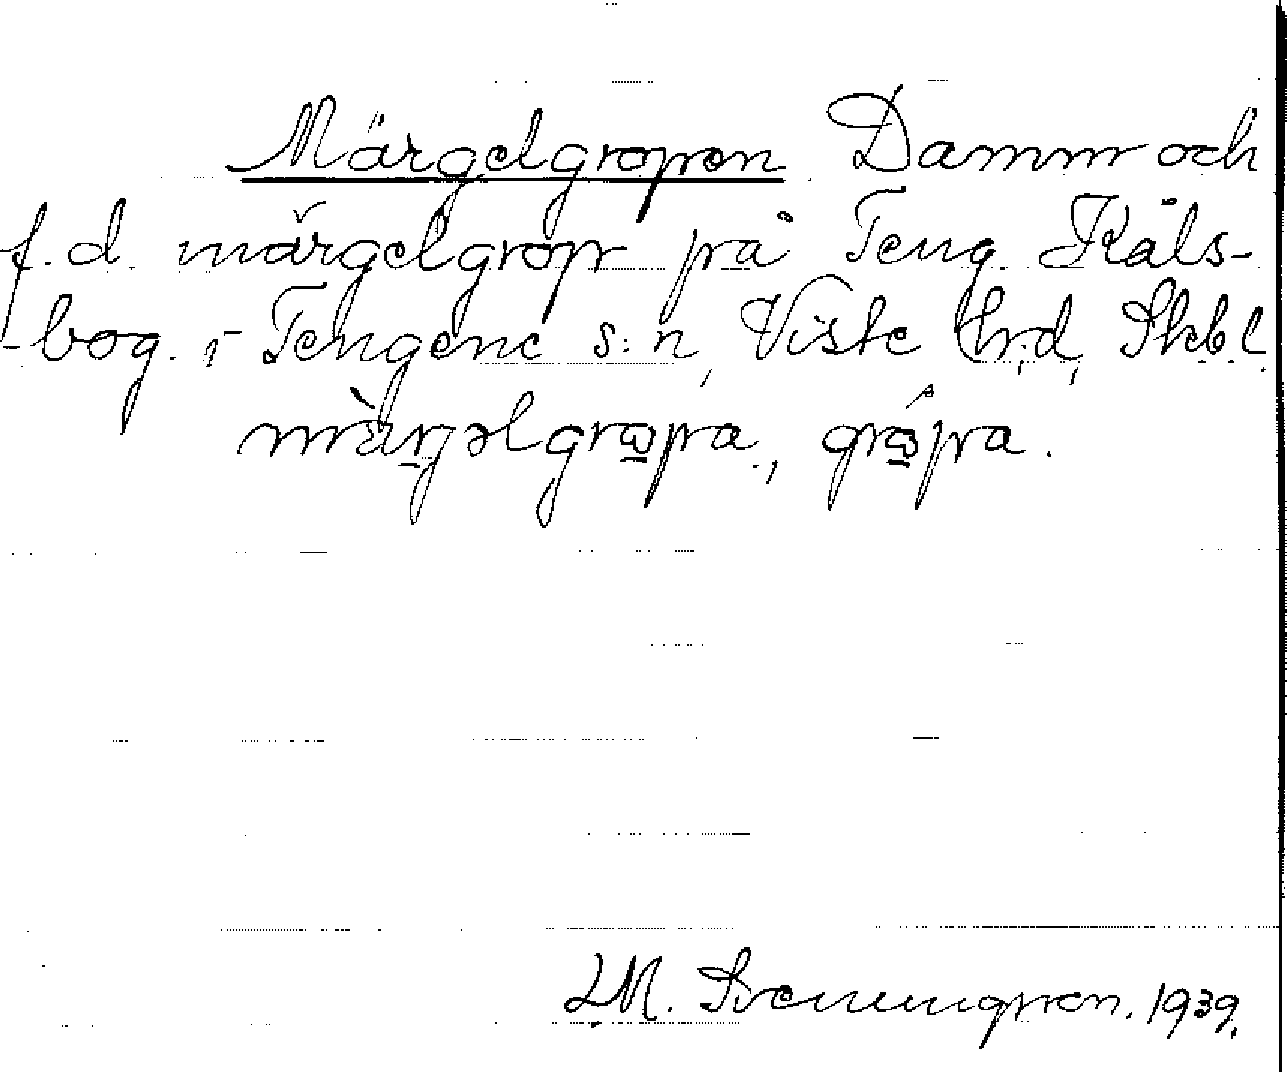 Märgelgropen Damm och
f.d. märgelgrop på Teng Käls-
-bog. i Tengene s:n, Viste hd, Skbl.
màrjəlgrωpa, grώpa.
LM. Svenungsson. 1939.